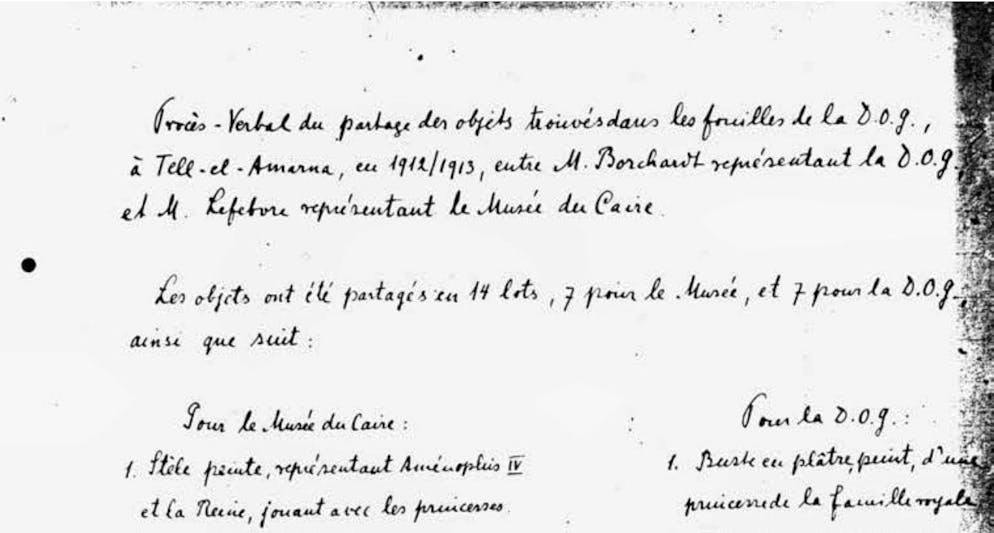 Procès-Verbal du partage des objets trouvés dans les fouilles de la D.O.G.,
à Tell-el-Amarna, en 1912/1913, entre M. Borchardt représentant la D.O.G.
et M. Lefebvre représentant le Musée du Caire.
Les objets ont été partagés en 14 lots, 7 pour le Musée, et 7 pour la D.O.G.,
ainsi que suit :
Pour le Musée du Caire :
1. Stèle peinte, représentant Aménophis IV
et la Reine, jouant avec les princesses.
Pour la D.O.G. :
1. Buste en plâtre, peint, d'une
princesse de la famille royale